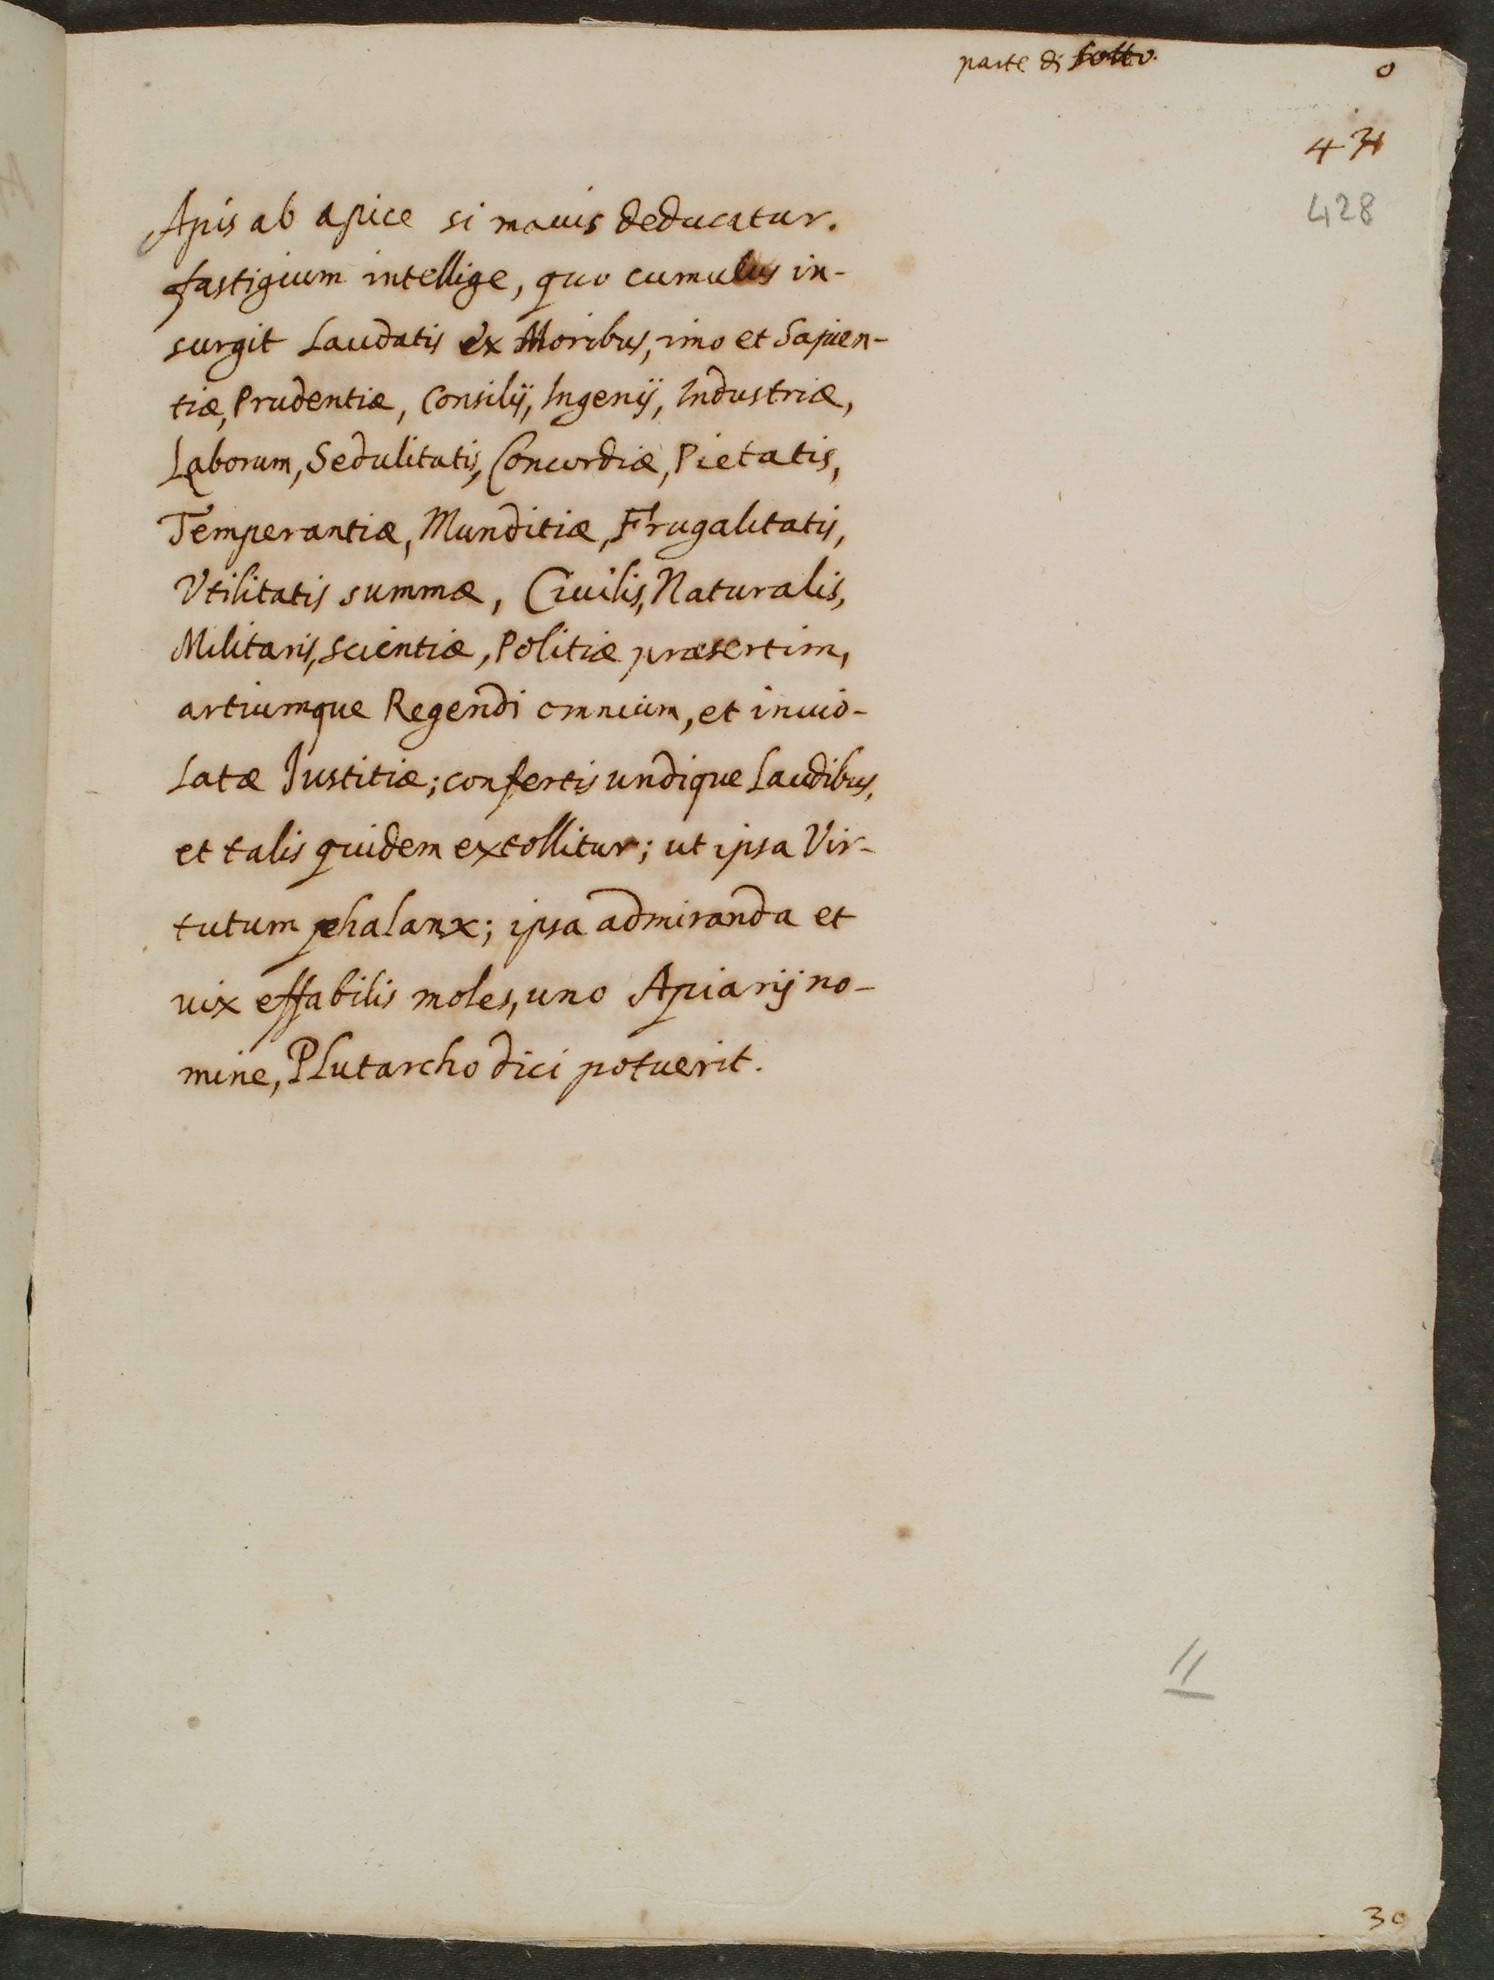 parte di sotto.
0
431
428
Apis ab apice si mauis deducatur.
fastigium intellige, quo cumulus in-
surgit Laudatis ex Moribus, imo et Sapien-
tiæ, Prudentiæ, Consilij, Ingenij, Industriæ,
Laborum, Sedulitatis, Concordiæ, Pietatis,
Temperantiæ, Munditiæ, Frugalitatis,
Vtilitatis summæ, Ciuilis, Naturalis,
Militaris, scientiæ, Politiæ præsertim,
artiumque Regendi omnium, et inuio-
latæ Justitiæ; confertis undique Laudibus,
et talis quidem extollitur; ut ipsa Vir-
tutum phalanx; ipsa admiranda et
uix effabilis moles, uno Apiarij no-
mine, Plutarcho dici potuerit.
11
30